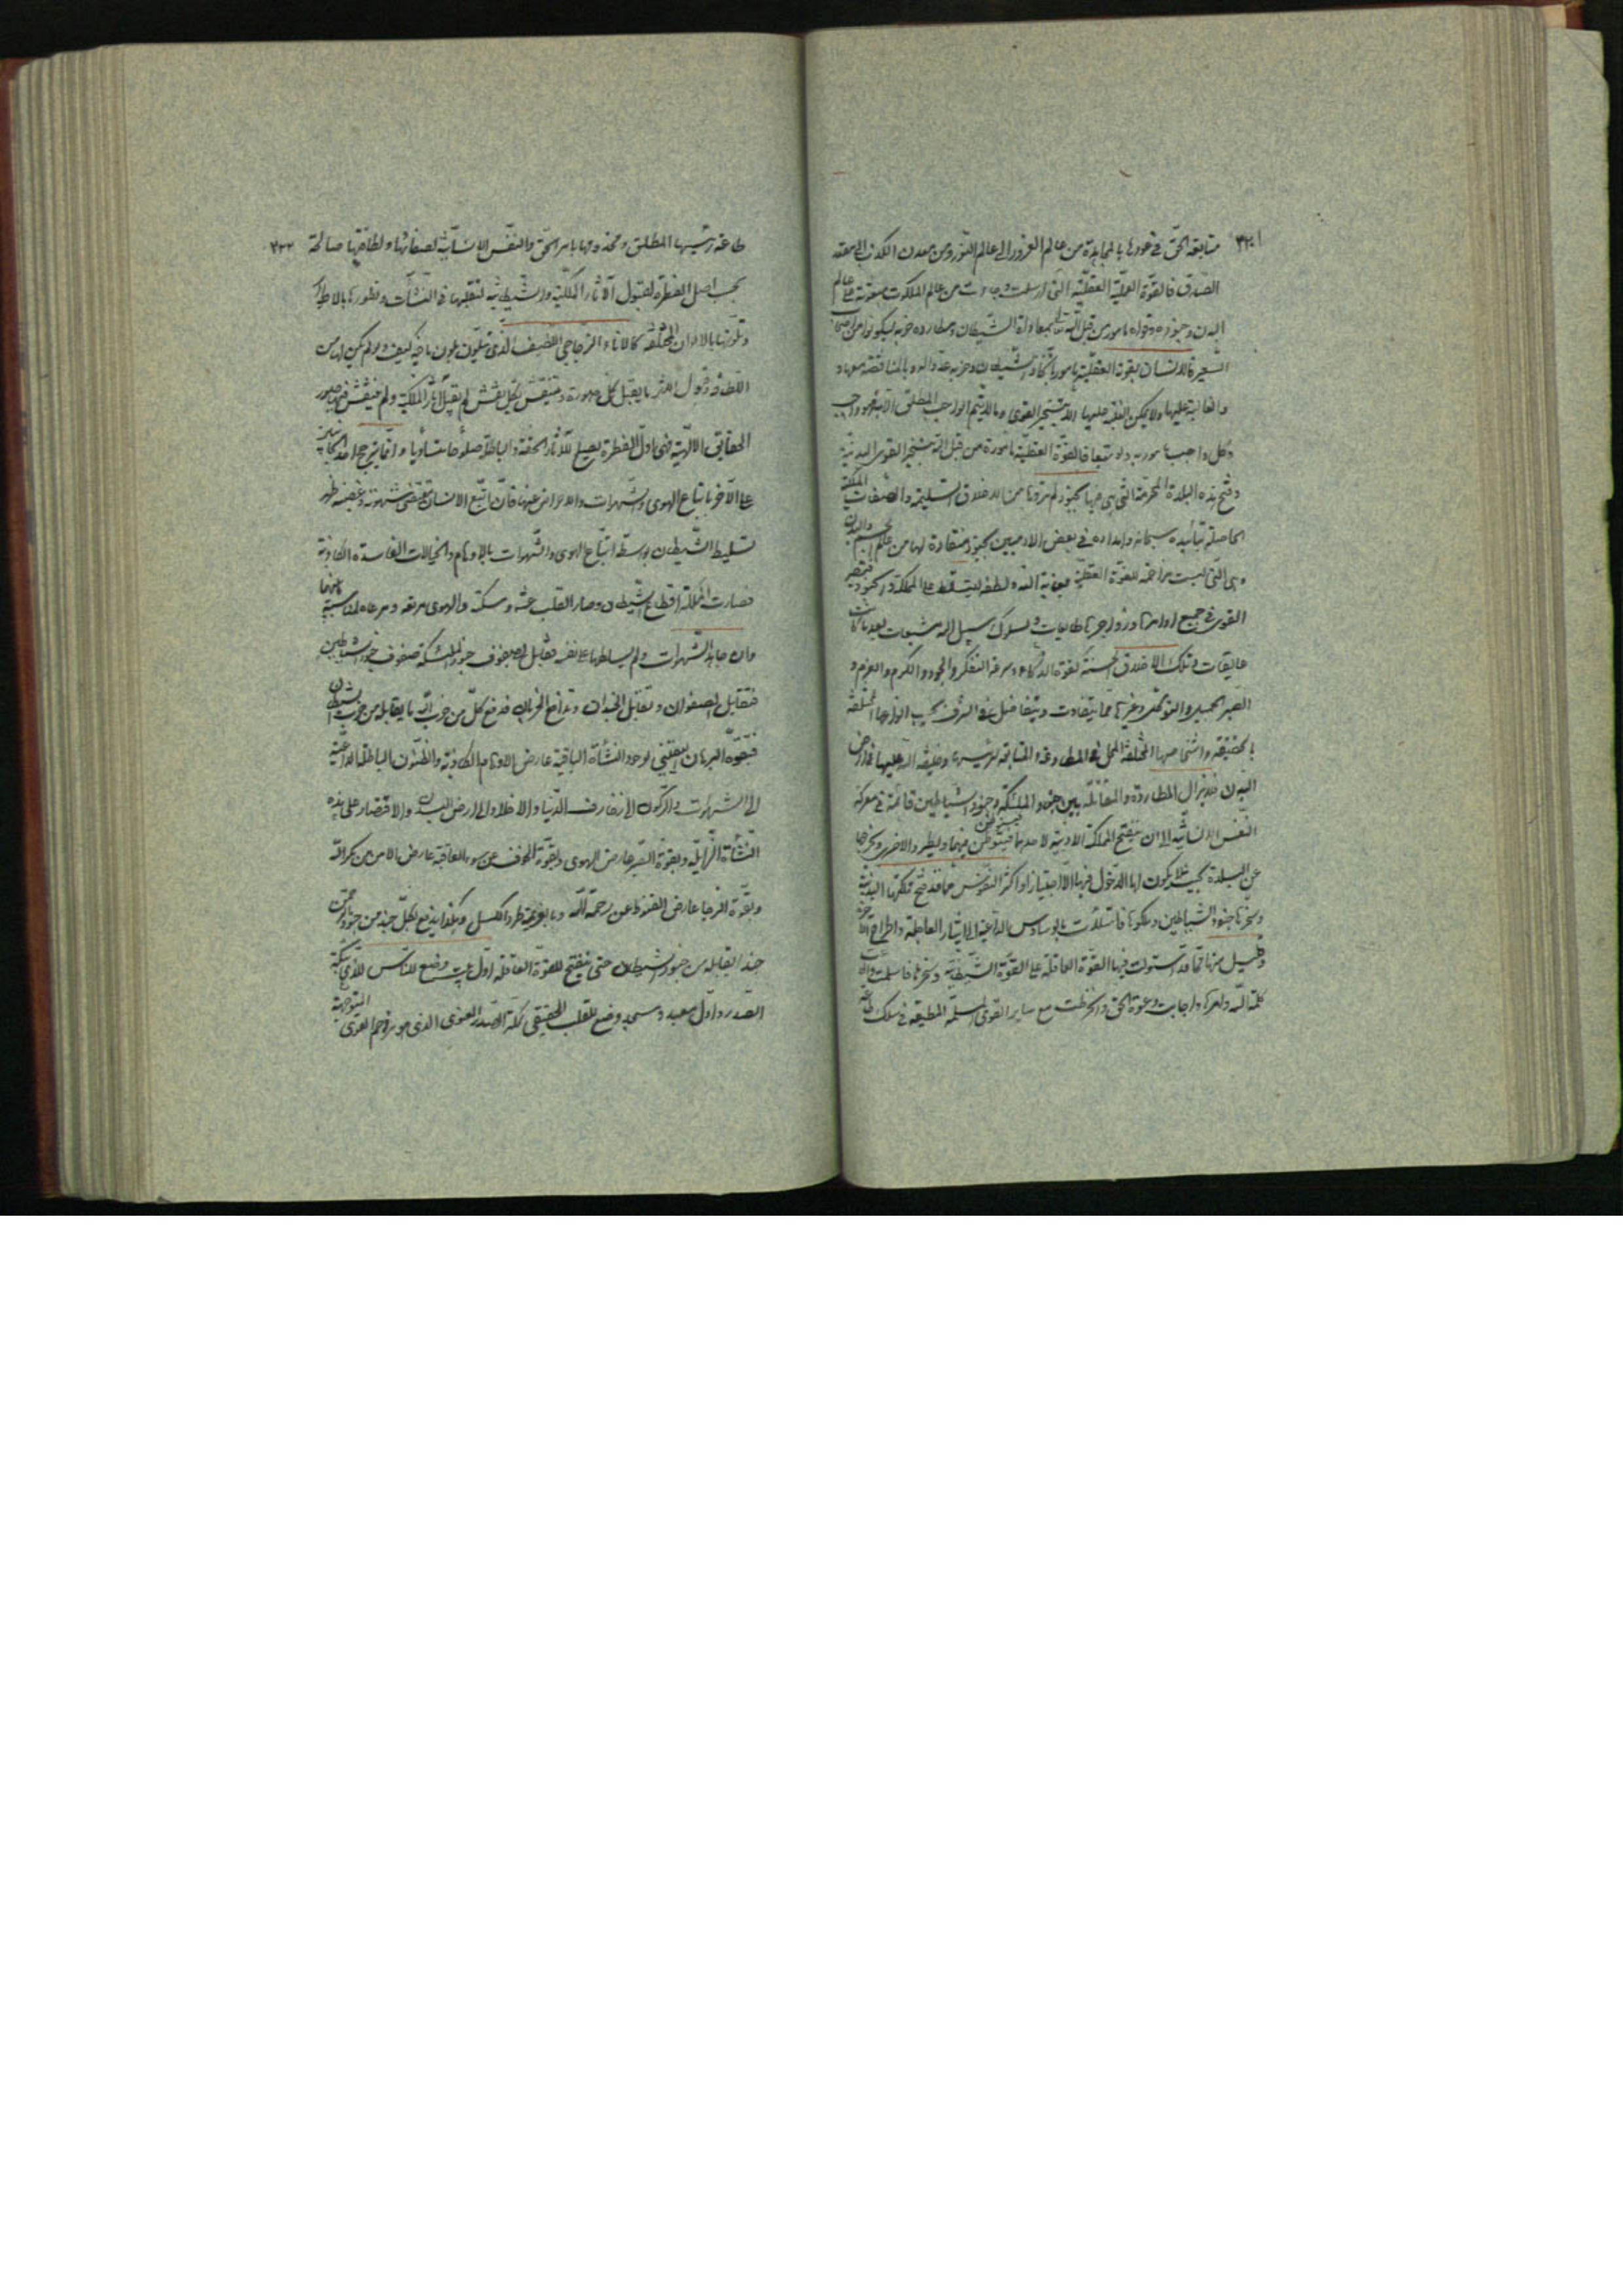 ٣٢١
متابعة الحق في عودها بالمجاهدة من عالم الغرور الى عالم النور ومن معدن الكذب الى مقعد
الصدق فالقوة العملية العقلية التى ارسلت وجاءت من عالم الملكوت مبعوثة على عالم
البدن وجنوده وقواه مامور من قبل الله تعالى بمعاداة الشيطان ومطاردة حزبه ليكونوا من اصحاب
السعير فالانسان بقوته العقلية مامور الشيطان وحزبه عدوا له وبالمناقضة معها و
والغالبية عليها ولا يمكن الغلبة عليها الا بتسخير القوى وما لا يتم الواجب المطلق الا به فهو واجب
وكل واجب مامور به ولو تبعا فالقوة العقلية مامورة من قبل الله بتسخير القوى البدنية
وفتح هذه البلدة المحرمة التى هى فيها بجنود لم تروها من الاخلاق السليمة والصفات الملكية
الحاصلة بتأييده سبحانه وامداده في بعض الادميين بجنود منقادة لها من عالم الجسم والبدن
وهى التى ليست مزاحمة للقوة العقلية بعناية الله ولطفه ليتسلط على المملكة والجنود فتصير
القوى في جميع اوامرها وزواجرها طايعات في سلوك سبيل الله بعد ما كانت
عايقات وتلك الاخلاق الحسنة كقوة الذكاء وسرعة التفكر والجود والكرم والعزم و
الصبر الجميل والتوكل وغيرها مما يتفاوت ويتفاضل في الشرف بحسب انواعها المختلفة
بالحقيقة واشخاصها المختلفة المطاوعة والمتابعة لرئيسها وخليفة الله عليها في ارض
البدن فلا يزال المطاردة والمقاتلة بين جنود الملئكة وجنود الشياطين قائمة في معركة
النفس الانسانية الى ان ينفتح المملكة الادمية لاحدهما فيتوطن فيها ويطرد الاخر ويخرجها
عن البلدة بحيث لا يكون لها الدخول فيها الا اجتيازا واكثر النفوس مما قد فتح ملكتها البدنية
وسخرها جنود الشياطين وملكوها فامتلأت بالوساوس الداعية الى ايثار العاجلة واطراح الاخرة
وقليل منها مما قد استولت فيها القوة العاقلة على القوة الشيطانية وسخرها فاسلمت
كلمة الله وامره واجابت دعوة الحق وانخرطت مع ساير القوى المسلمة المطيعة في سلك طاعة
٣٢٢
طاعة رئيسها المطلق ومخدومها بامر الحق والنفس الانسانية لصفائها ولطافتها صالحة
بحسب اصل الفطرة لقبول الآثار الملكية والشيطانية لتقلبها في النشآت وتطورها بالاطوار
وتلونها بالالوان المختلفة كالاناء الزجاجي اللطيف الذي يتلون بلون ما فيه كيف ولو لم يكن لها من
اللطافة وقبول الاثر ما يقبل كل صورة وينتقش بكل نقش لم تقبل آثار الملكية ولم ينتقش فيها صور
الحقايق الالهية فهى في اول الفطرة يصلح للآثار الحقة والباطلة صلوحا متساويا وانما يترجح احد الجانبين
على الآخر باتباع الهوى والشهوات والاعراض عنها فان اتبع الانسان مقتضى شهوته وغضبه ظهر
تسليط الشيطان بواسطة اتباع الهوى والشهوات بالاوهام والخيالات الفاسدة الكاذبة
فصارت المملكة اقطاع الشيطان وصار القلب عشه ومسكنه والهوى مرتعه ومرعاه لمناسبة بينهما
وان جاهد الشهوات ولم يسلطها على نفسه تقابل لصفوف جنود الملئكة صفوف جنود الشياطين
فتقابل الصفوان وتقاتل الجندان وتدافع الحزبان فدفع كل من حزب الله ما يقابله من حزب الشيطان
فبقوة البرهان اليقيني لوجود النشأة الباقية عارض الاوهام الكاذبة والظنون الباطلة الداعية
الى الشهوات والركون الى زخارف الدنيا والاخلاد الى ارض البدن والاقتصار على هذه
النشأة الزايلة وبقوة الصبر عارض الهوى وبقوة الخوف عن سوء العاقبة عارض الامن من مكر الله
وبقوة الرجاء عارض القنوط عن رحمة الله وبالعزيمة طرد الكسل وهكذا يدفع بكل جند من جنود الرحمن
جند ايقابله من جنود الشيطان حتى ينفتح للقوة العاقلة اول بيت وضع للناس للذي ببكة
الصدر واول معبد ومسجد وضع للقلب الحقيقي بكة الصدر المعنوى الذي هو مزدحم القوى المتوجهة